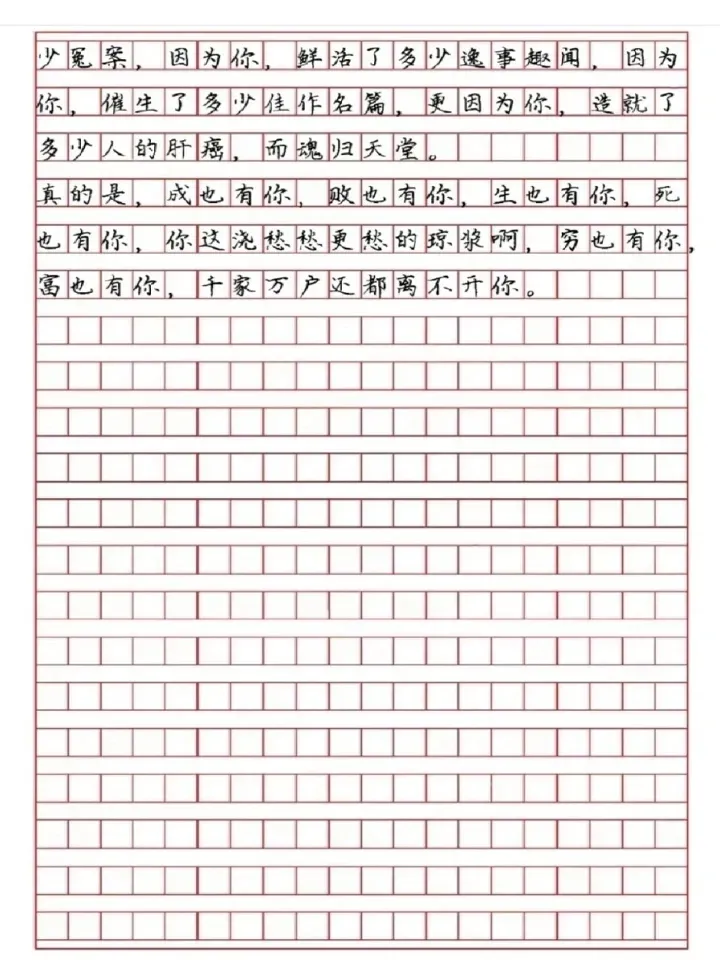 少冤案，因为你，鲜活了多少逸事趣闻，因为
你，催生了多少佳作名篇，更因为你，造就了
多少人的肝癌，而魂归天堂。
真的是，成也有你，败也有你，生也有你，死
也有你，你这浇愁愁更愁的琼浆啊，穷也有你，
富也有你，千家万户还都离不开你。